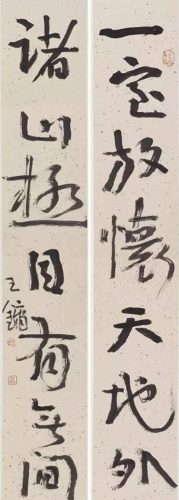 一室放懷天地外
諸山極目有無間
王鏞